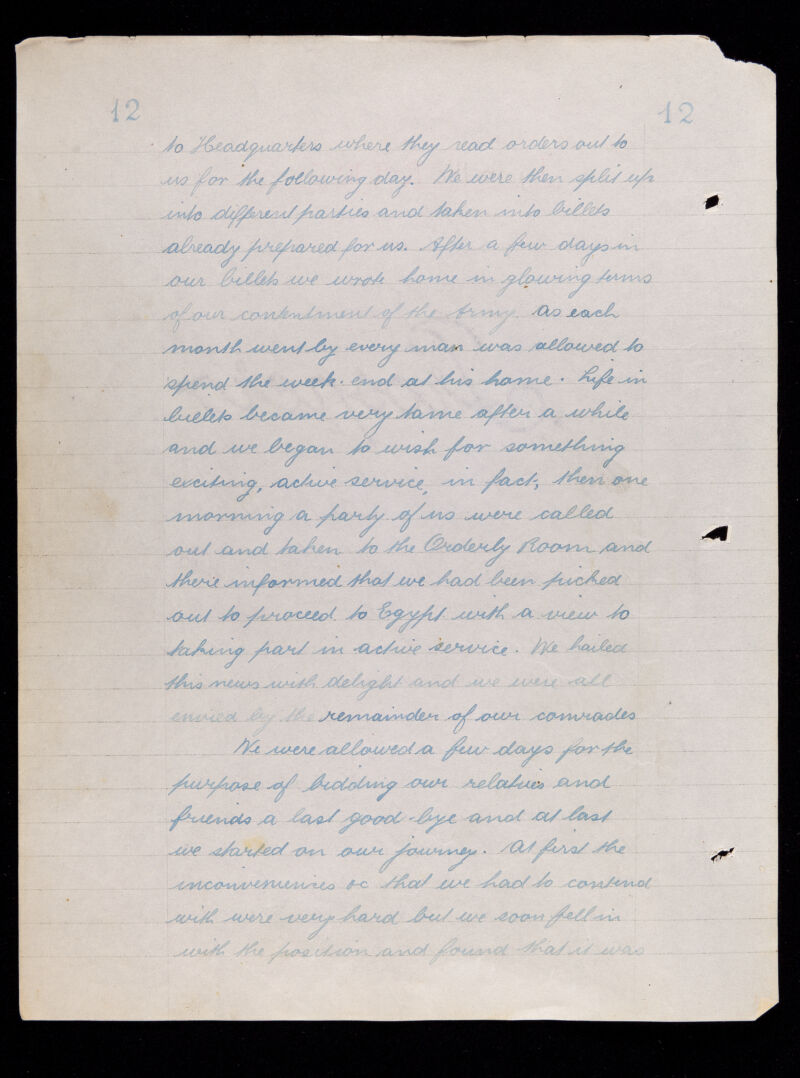 12 12
to Headquarters where they read orders out to
us for the following day. We were then split up
into different parties and taken into billets
already prepared for us. After a few days in
our billets we wrote home in glowing terms
of our contentment of the Army. As each
month went by every man was allowed to
spend the week-end at his home. Life in
billets became very tame after a while
and we began to wish for something
exciting, active service, in fact, then one
morning a party of us were called
out and taken to the Orderly Room and
there informed that we had been picked
out to proceed to Egypt with a view to
taking part in active service. We hailed
this news with delight and we were all
envied by the remainder of our comrades
We were allowed a few days for the
purpose of bidding our relatives and
friends a last good-bye and at last
we started on our journey. At first the
inconveniences &c that we had to contend
with were very hard but we soon fell in
with the position and found that it was